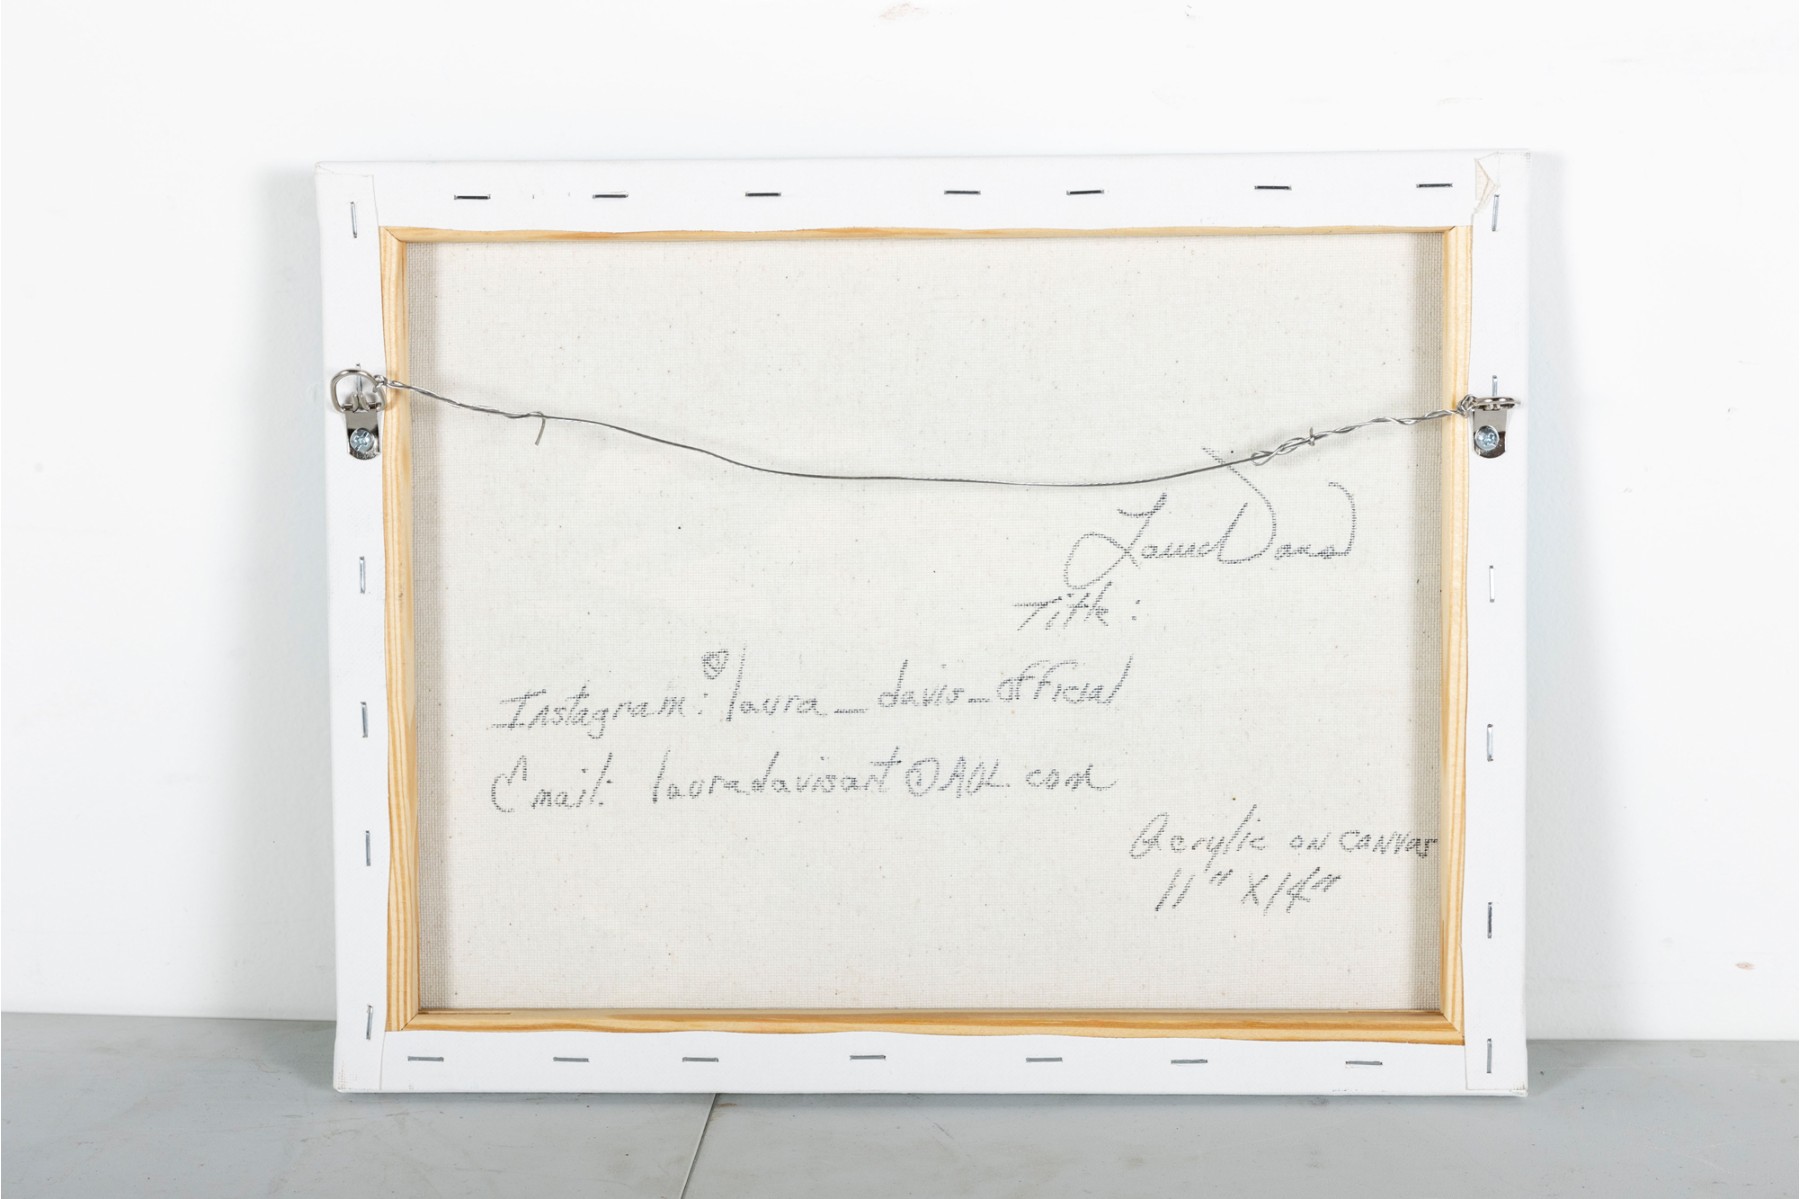 Laura Davis
Title:
Instagram: laura_davis_official
Email: lauradavisart@AOL.com
Acrylic on canvas
11" x 14"